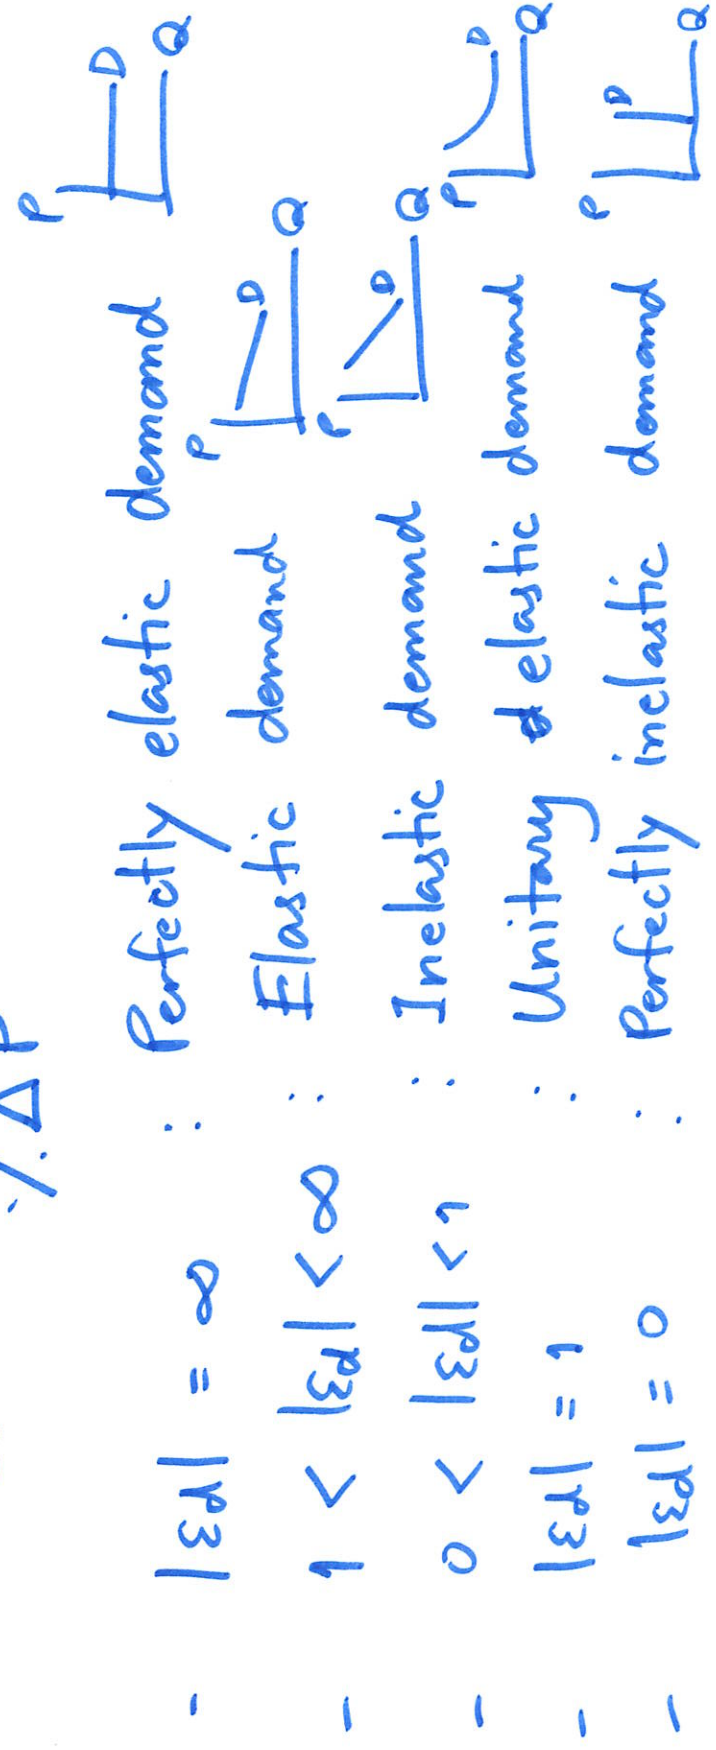 % ΔP
- |εd| = ∞ : Perfectly elastic demand P D Q
- 1 < |εd| < ∞ : Elastic demand P D Q
- 0 < |εd| < 1 : Inelastic demand P D Q
- |εd| = 1 : Unitary elastic demand P D Q
- |εd| = 0 : Perfectly inelastic demand P D Q